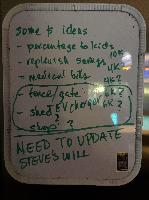 Some $ ideas
- percentage to kids
10%
- replenish savings
4K
- medical bills
4K?
- fence/gate ?
- shed EV charger 6K?
?
shop?
?
NEED TO UPDATE
STEVE'S WILL